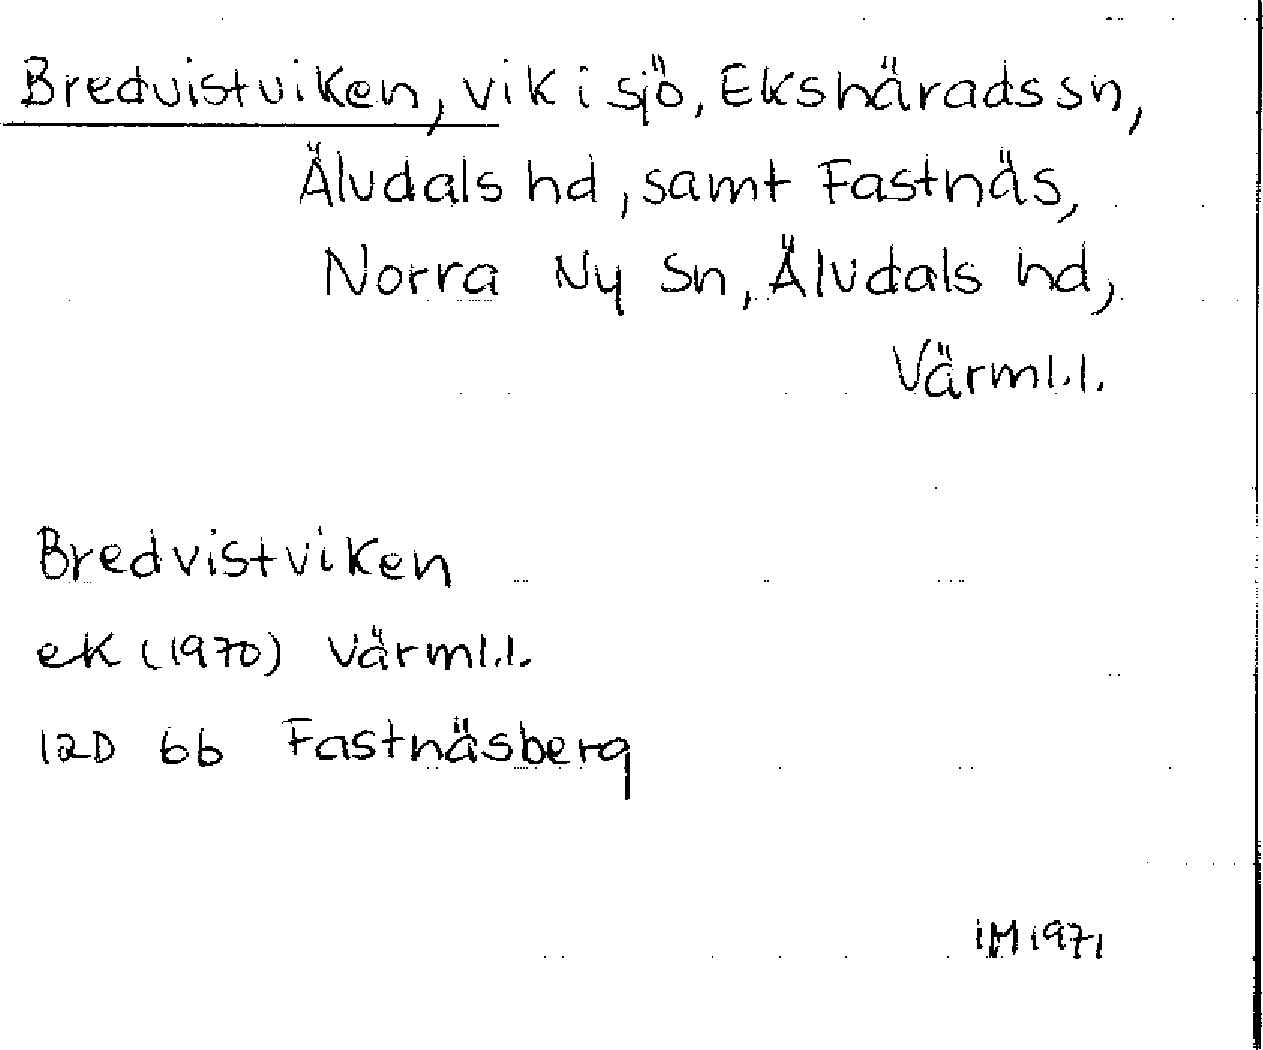 Bredvistviken, vik i sjö, Ekshärads sn,
Älvdals hd, samt Fastnäs,
Norra Ny sn, Älvdals hd,
Värml.l.
Bredvistviken
ek (1970) Värml.l.
12D 6b Fastnäsberg
IM 1971